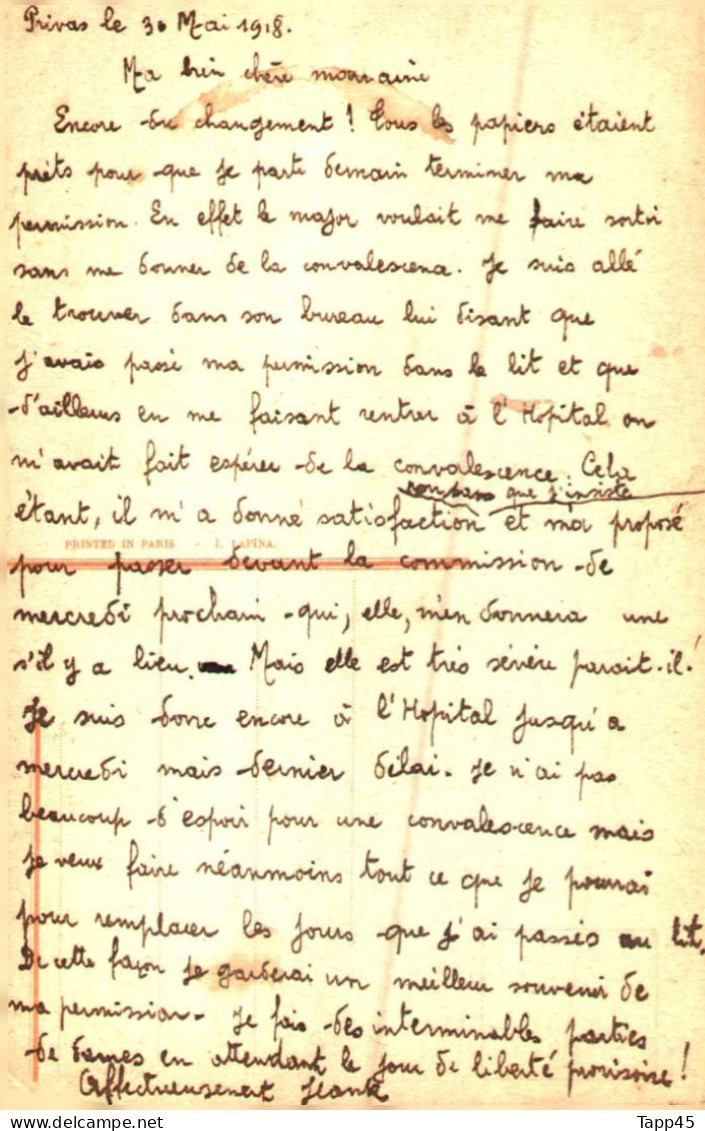 Privas le 30 Mai 1918.
Ma bien chère marraine
Encore du changement ! Tous les papiers étaient
prêts pour que je parte demain terminer ma
permission. En effet le major voulait me faire sortir
sans me donner de la convalescence. Je suis allé
le trouver dans son bureau lui disant que
j'avais passé ma permission dans le lit et que
d'ailleurs en me faisant rentrer à l'Hôpital on
m'avait fait espérer de la convalescence. Cela
non sans que j'insiste
étant, il m'a donné satisfaction et m'a proposé
PRINTED IN PARIS - I. LAPINA.
pour passer devant la commission de
mercredi prochain qui, elle, m'en donnera une
s'il y a lieu. Mais elle est très sévère paraît-il !
Je suis donc encore à l'Hôpital jusqu'à
mercredi mais dernier délai. Je n'ai pas
beaucoup d'espoir pour une convalescence mais
je veux faire néanmoins tout ce que je pourrai
pour remplacer les jours que j'ai passés au lit.
De cette façon je garderai un meilleur souvenir de
ma permission. Je fais des interminables parties
de dames en attendant le jour de liberté provisoire !
Affectueusement
Tapp45